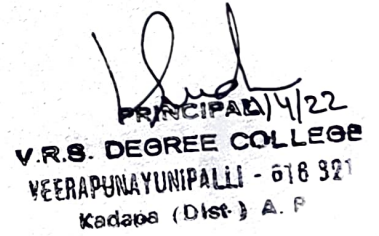 PRINCIPAL /4/22
V.R.S. DEGREE COLLEGE
VEERAPUNAYUNIPALLI - 516 321
Kadapa (Dist.) A. P